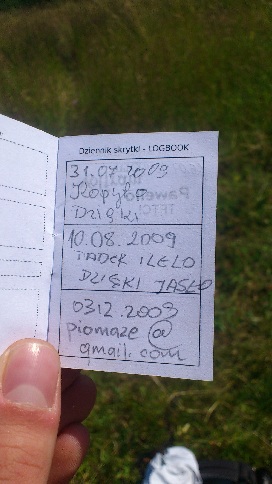 Dziennik skrytki - LOGBOOK
31.07.2009
Kopyto
Dzięki
10.08.2009
TADEK I LELO
DZIĘKI JASŁO
03.12.2009
piomaze@
gmail.com